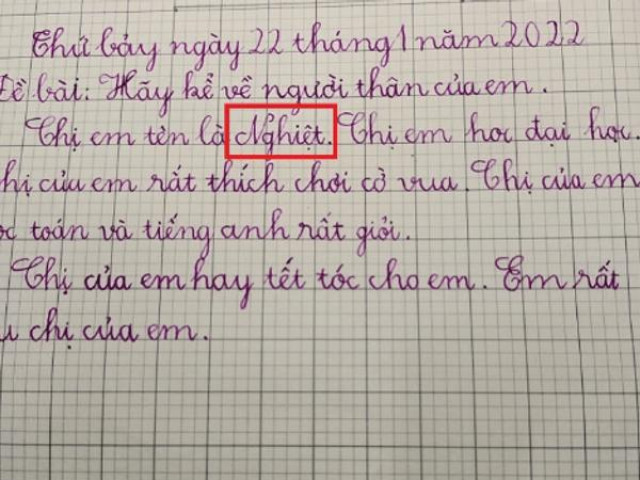 Thứ bảy ngày 22 tháng 1 năm 2022
Đề bài: Hãy kể về người thân của em.
Chị em tên là Nghiệt. Chị em học đại học.
Chị của em rất thích chơi cờ vua. Chị của em
học toán và tiếng anh rất giỏi.
Chị của em hay tết tóc cho em. Em rất
chị của em.